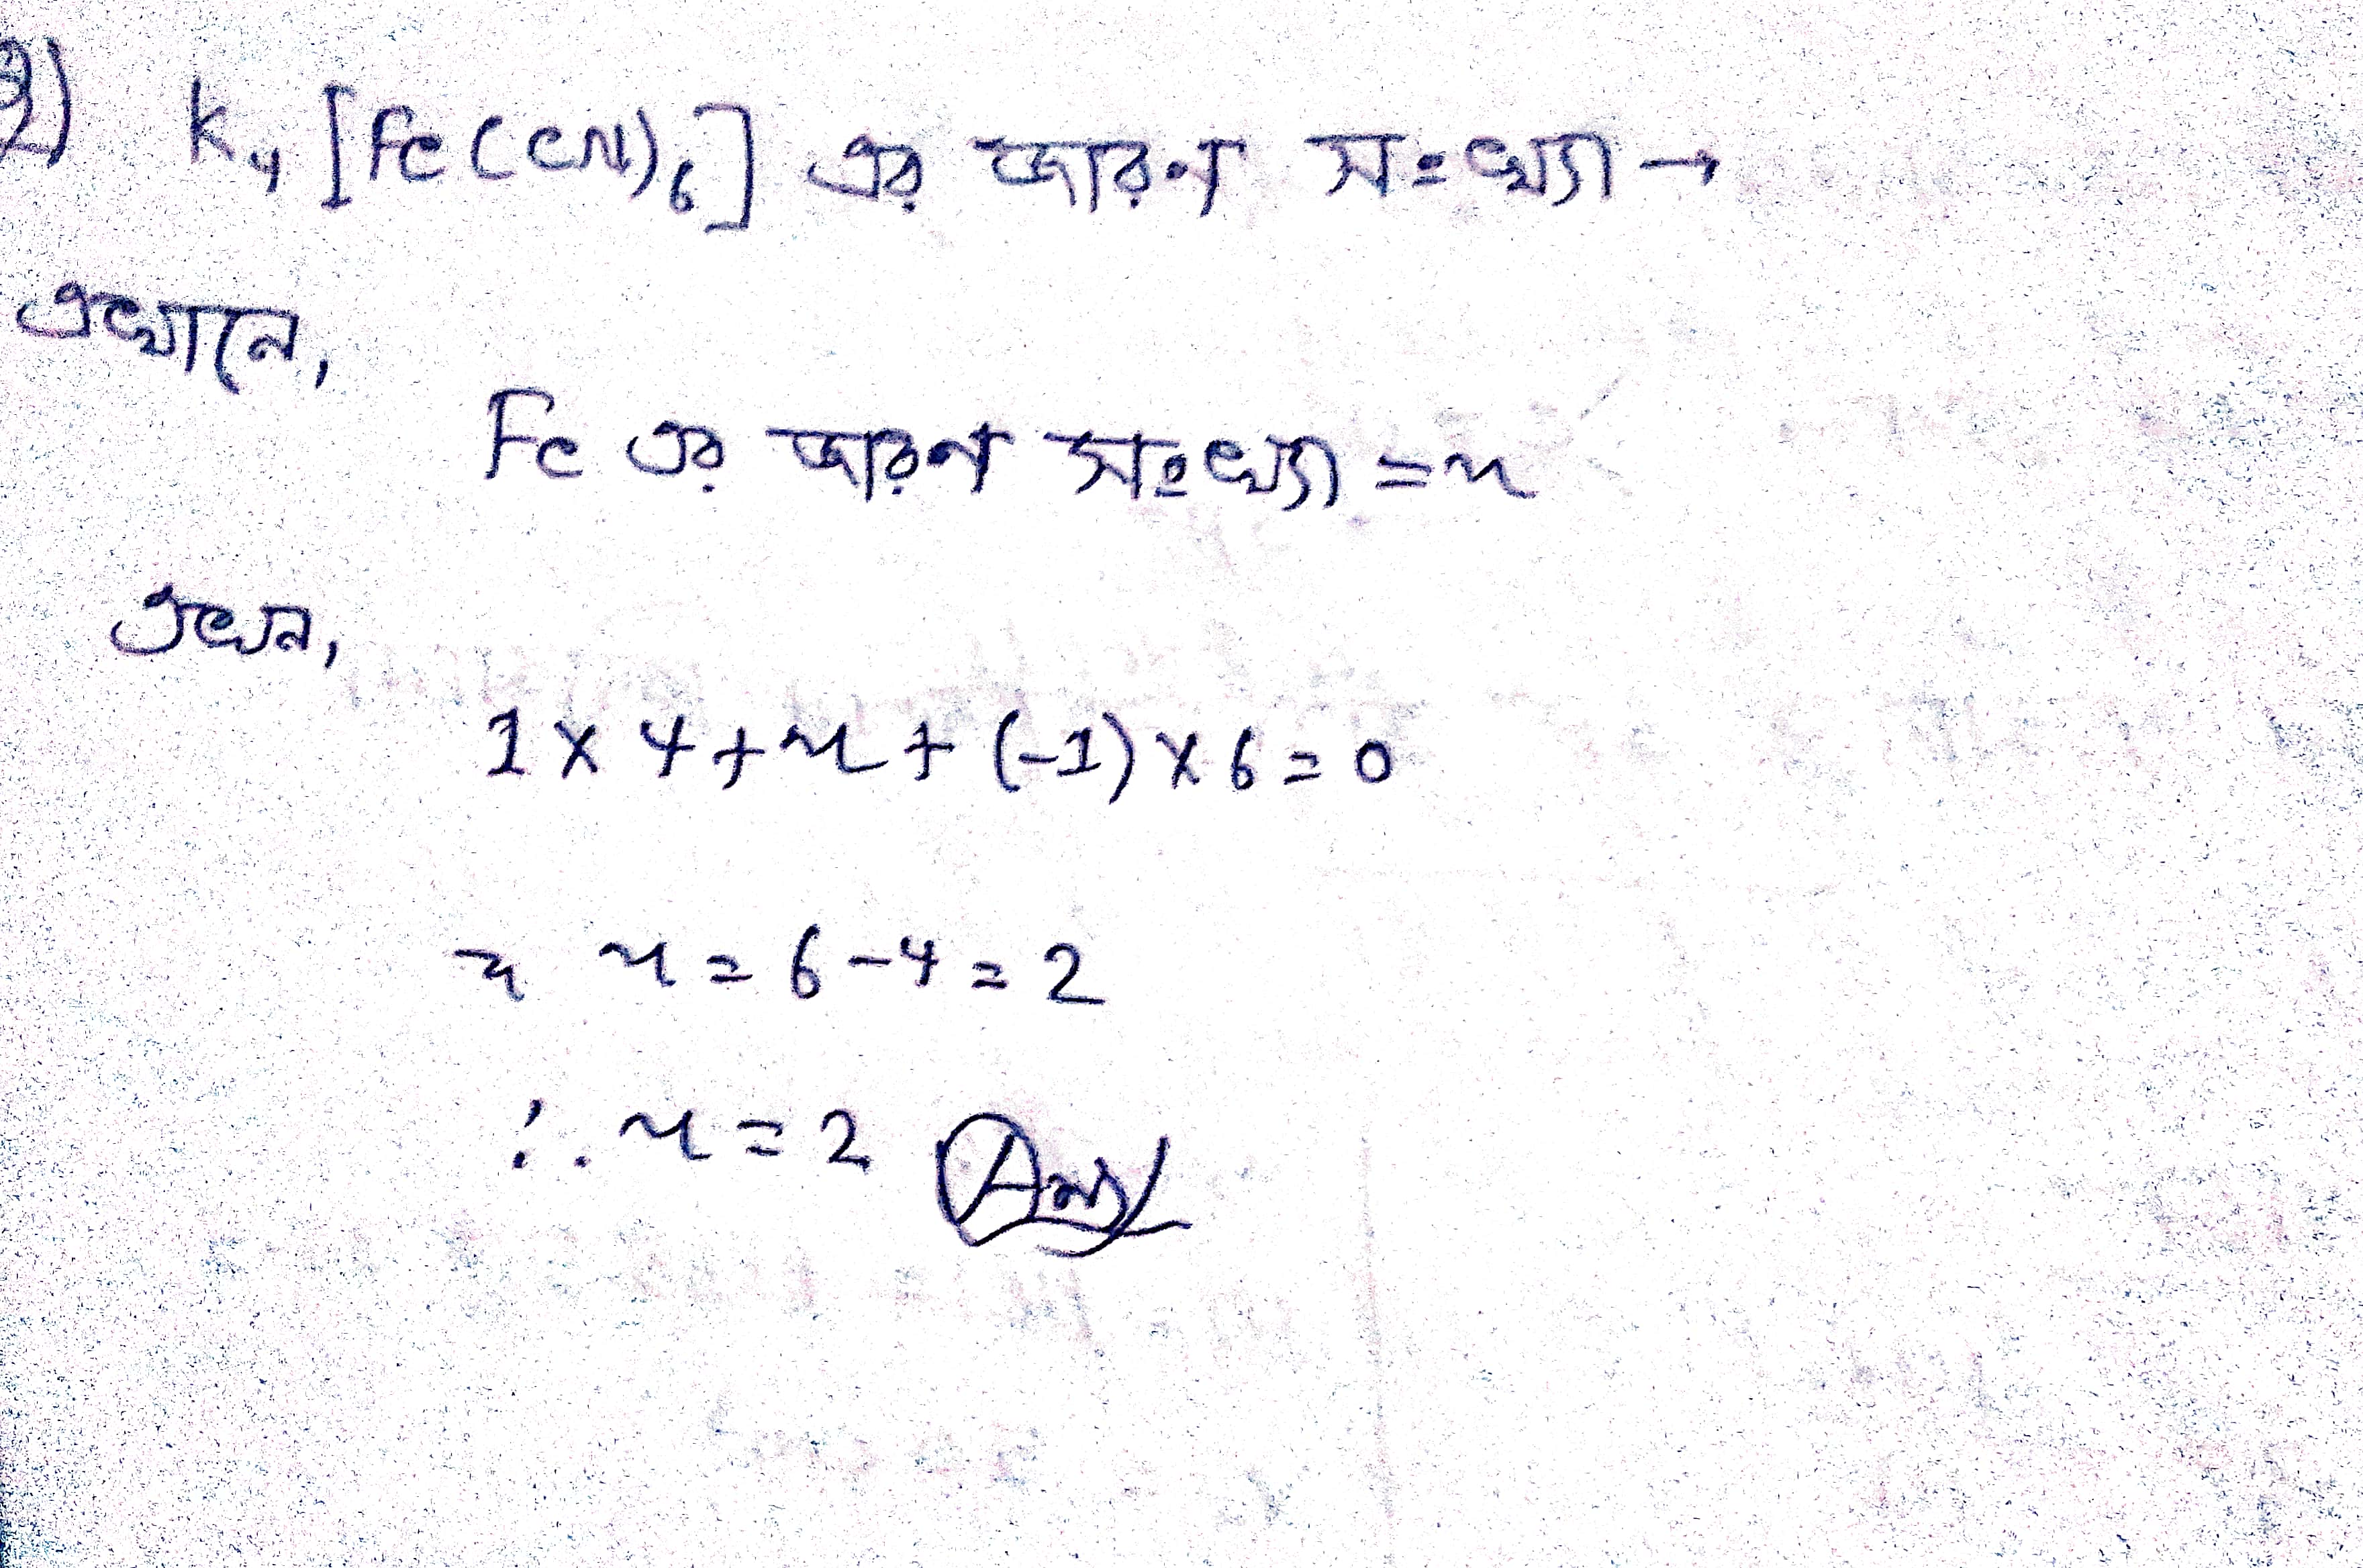 ২) K₄[Fe(CN)₆] এর জারণ সংখ্যা →
এখানে,
Fe এর জারণ সংখ্যা = x
এখন,
1 × 4 + x + (-1) × 6 = 0
⇒ x = 6 - 4 = 2
∴ x = 2 Ans